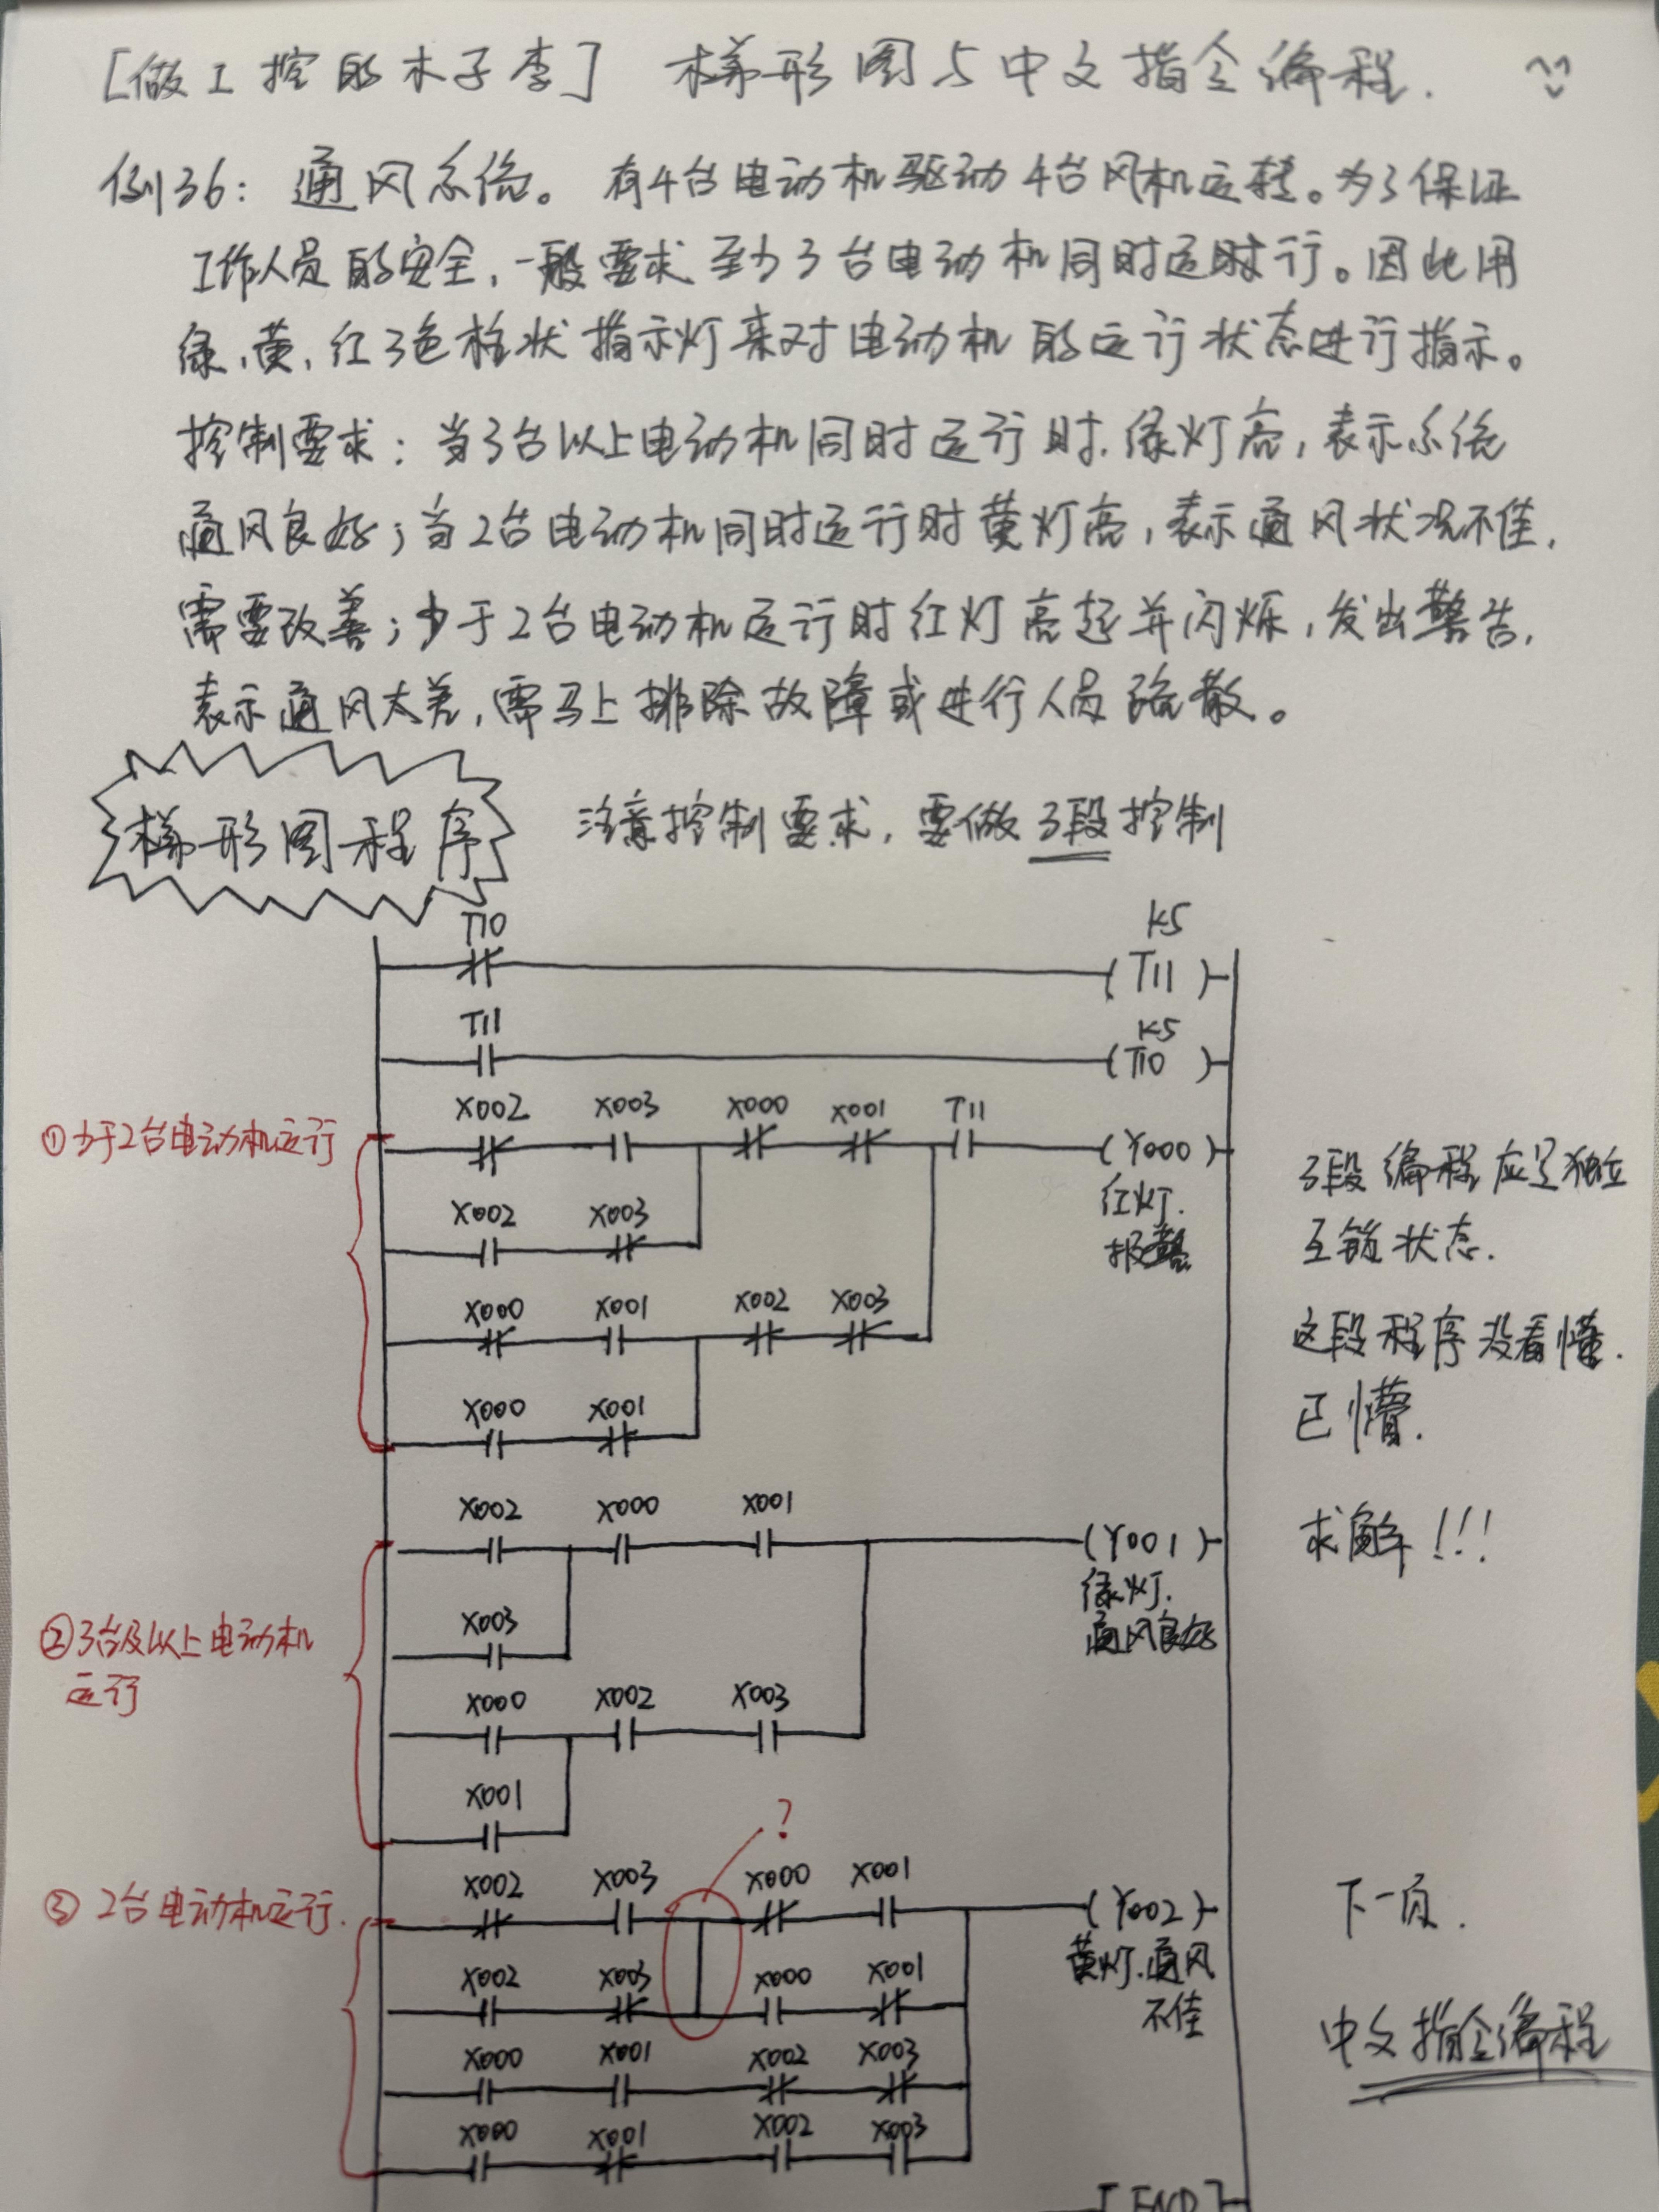 [做工控的木子李] 梯形图与中文指令编程.
例36: 通风系统。有4台电动机驱动4台风机运转。为了保证
工作人员的安全,一般要求至少3台电动机同时运时行。因此用
绿,黄,红3色柱状指示灯来对电动机的运行状态进行指示。
控制要求:当3台以上电动机同时运行时.绿灯亮,表示系统
通风良好;当2台电动机同时运行时黄灯亮,表示通风状况不佳,
需要改善;少于2台电动机运行时红灯亮起并闪烁,发出警告,
表示通风太差,需马上排除故障或进行人员疏散。
梯形图程序 注意控制要求,要做3段控制
T10 K5
T11
T11 K5
T10
X002 X003 X000 X001 T11
①少于2台电动机运行 Y000
红灯.
报警
3段编程应是独立
互锁状态.
X002 X003
X000 X001 X002 X003
这段程序没看懂.
X000 X001
已懵.
X002 X000 X001
Y001
求解!!!
绿灯.
通风良好
X003
②3台及以上电动机
运行
X000 X002 X003
X001
?
X002 X003 X000 X001
③2台电动机运行. Y002
黄灯.通风
不佳
下一页.
X002 X003 X000 X001
中文指令编程
X000 X001 X002 X003
X000 X001 X002 X003
[END]